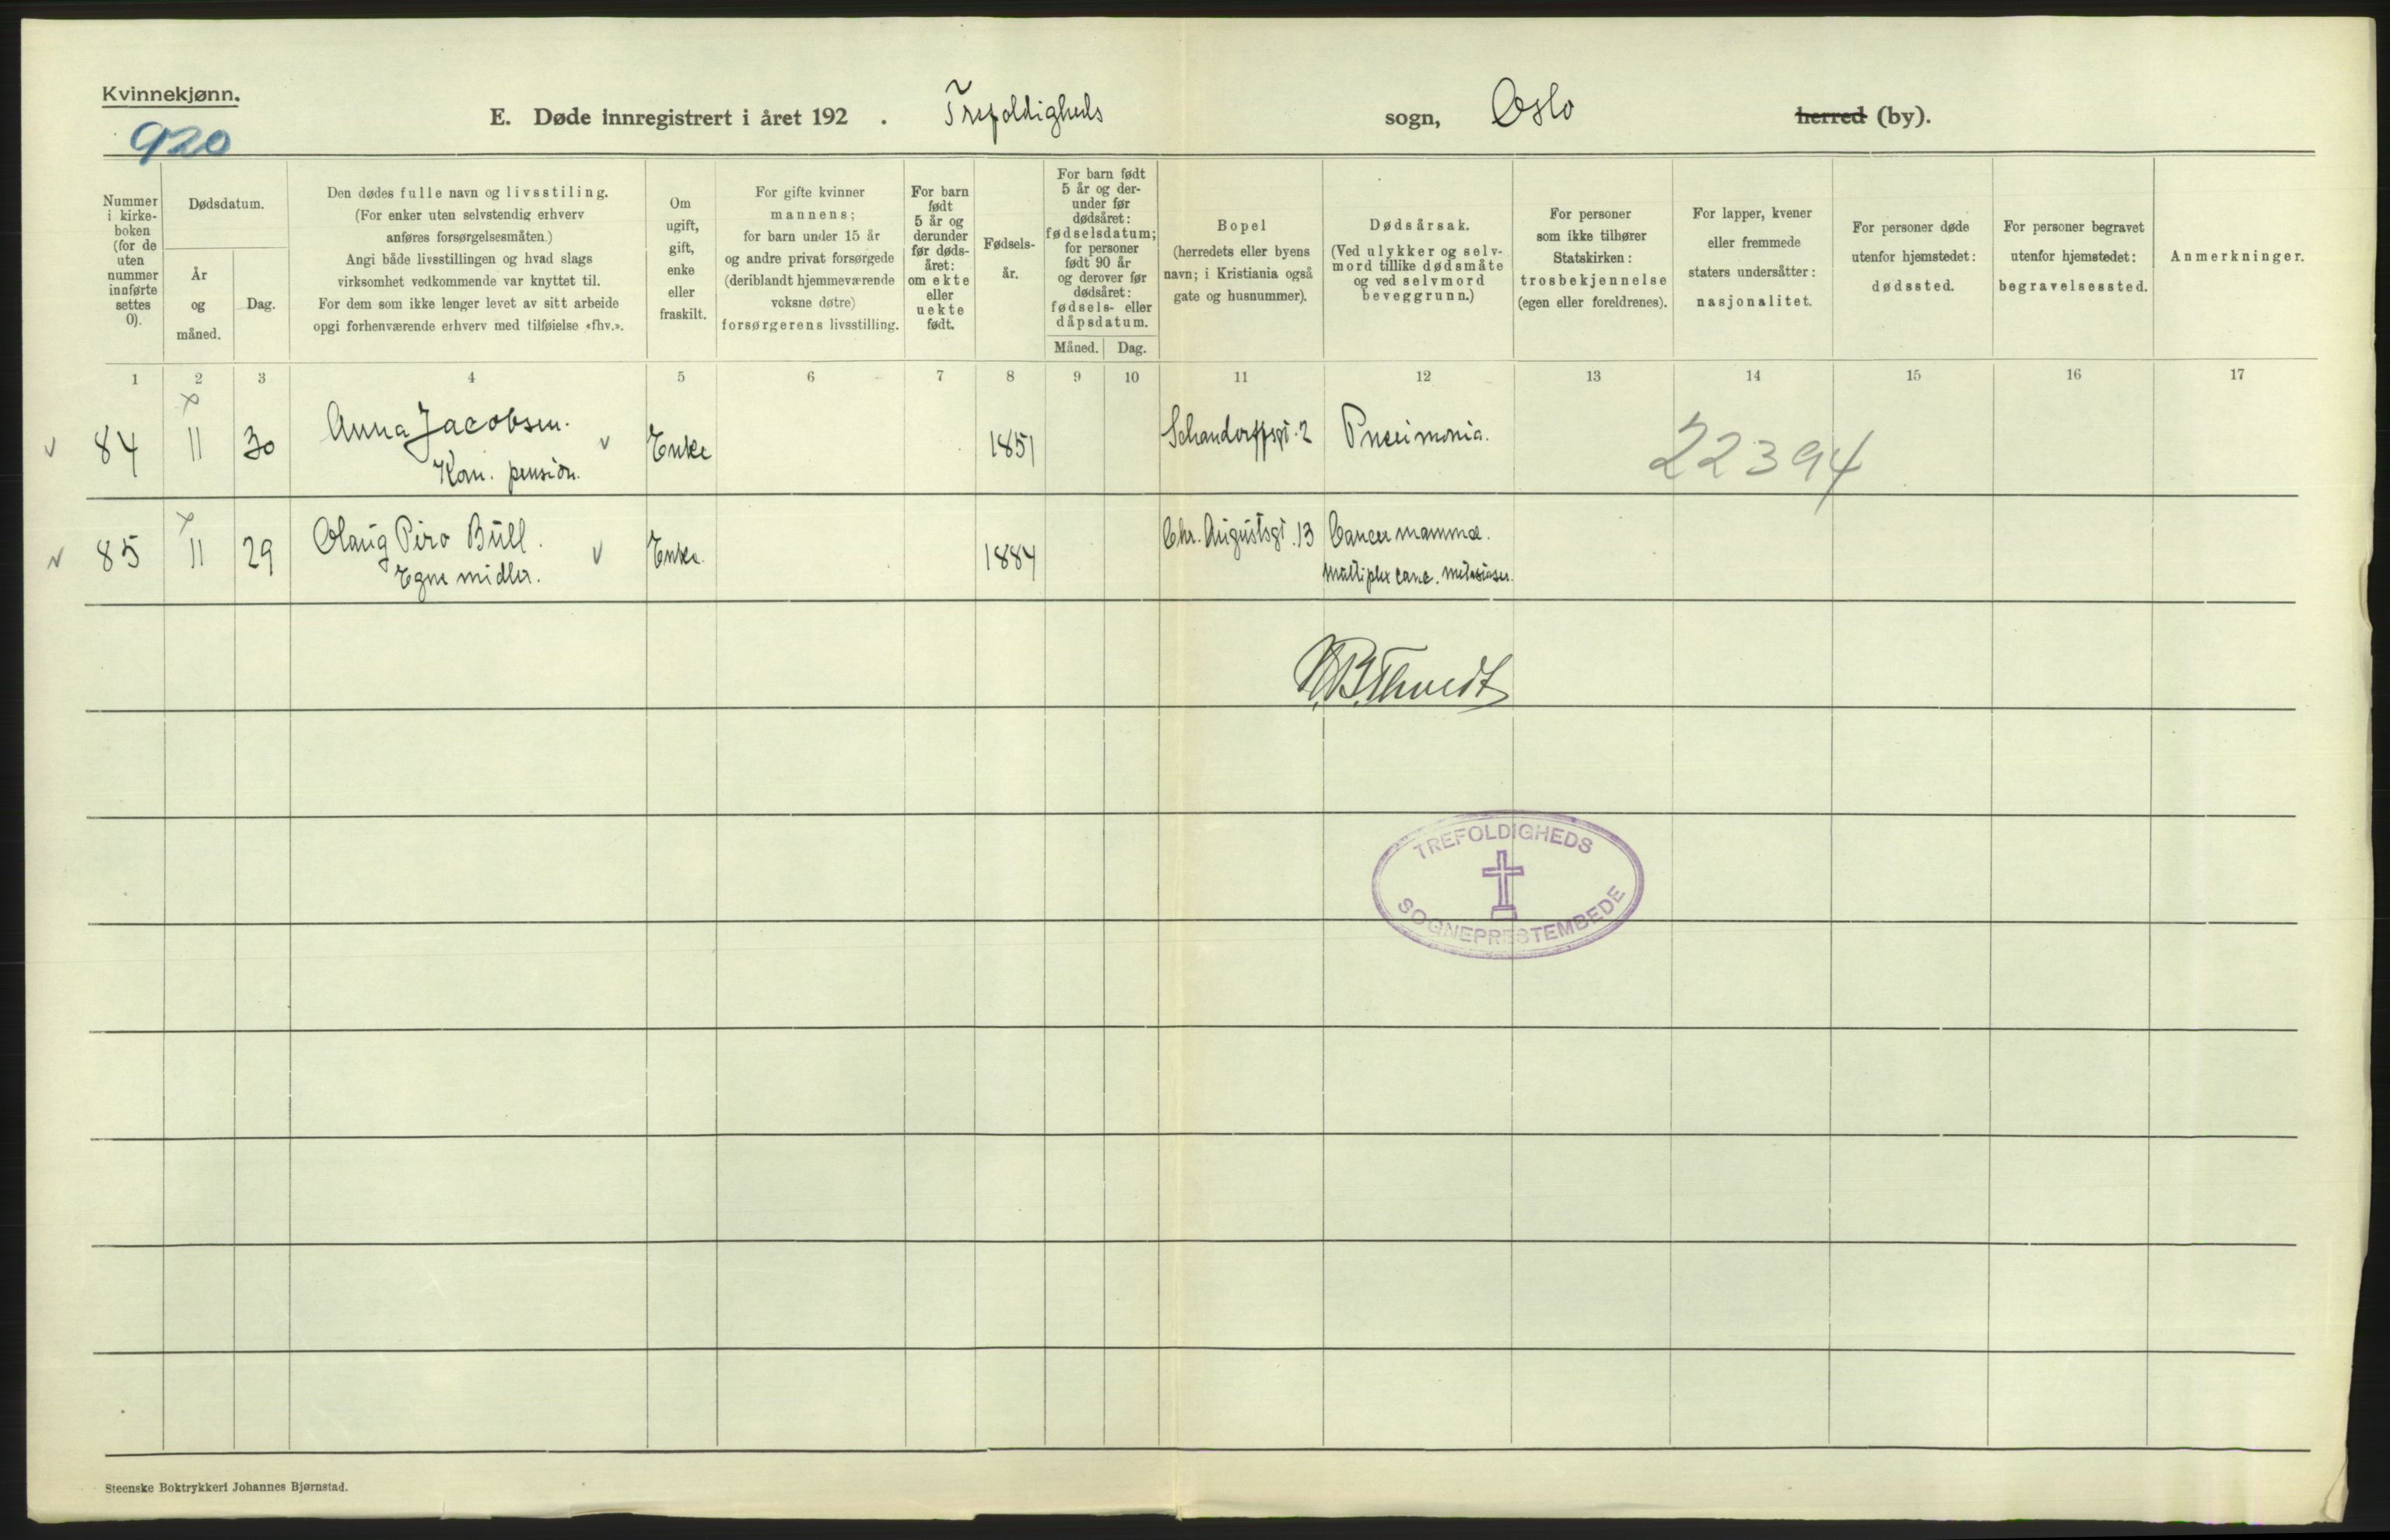 Kvinnekjønn.
920
E. Døde innregistrert i året 192 . Trefoldigheds sogn, Oslo herred (by).
Nummer
i kirke-
boken
(for de
uten
nummer
innførte
settes
0).
Dødsdatum.
År
og
måned.
Dag.
Den dødes fulle navn og livsstiling.
(For enker uten selvstendig erhverv
anføres forsørgelsesmåten.)
Angi både livsstillingen og hvad slags
virksomhet vedkommende var knyttet til.
For dem som ikke lenger levet av sitt arbeide
opgi forhenværende erhverv med tilføielse «fhv.».
Om
ugift,
gift,
enke
eller
fraskilt.
For gifte kvinner
mannens;
for barn under 15 år
og andre privat forsørgede
(deriblandt hjemmeværende
voksne døtre)
forsørgerens livsstilling.
For barn
født
5 år og
derunder
før døds-
året:
om ekte
eller
uekte
født.
Fødsels-
år.
For barn født
5 år og der-
under før
dødsåret:
fødselsdatum;
for personer
født 90 år
og derover før
dødsåret:
fødsels- eller
dåpsdatum.
Måned. Dag.
Bopel
(herredets eller byens
navn; i Kristiania også
gate og husnummer).
Dødsårsak.
(Ved ulykker og selv-
mord tillike dødsmåte
og ved selvmord
beveggrunn.)
For personer
som ikke tilhører
Statskirken:
trosbekjennelse
(egen eller foreldrenes).
For lapper, kvener
eller fremmede
staters undersåtter:
nasjonalitet.
For personer døde
utenfor hjemstedet:
dødssted.
For personer begravet
utenfor hjemstedet:
begravelsessted.
Anmerkninger.
1 2 3 4 5 6 7 8 9 10 11 12 13 14 15 16 17
84 11 30 Anna Jacobsen. Enke 1851 Schandorffsgt. 2 Pneumonia. 22394
Kom. pension.
85 11 29 Olaug Piro Bull. Enke. 1884 Chr. Augustsgt. 13 Cancer mammæ.
Egne midler. multiplex canc. metastaser.
TREFOLDIGHEDS
SOGNEPRESTEMBEDE
Steenske Boktrykkeri Johannes Bjørnstad.